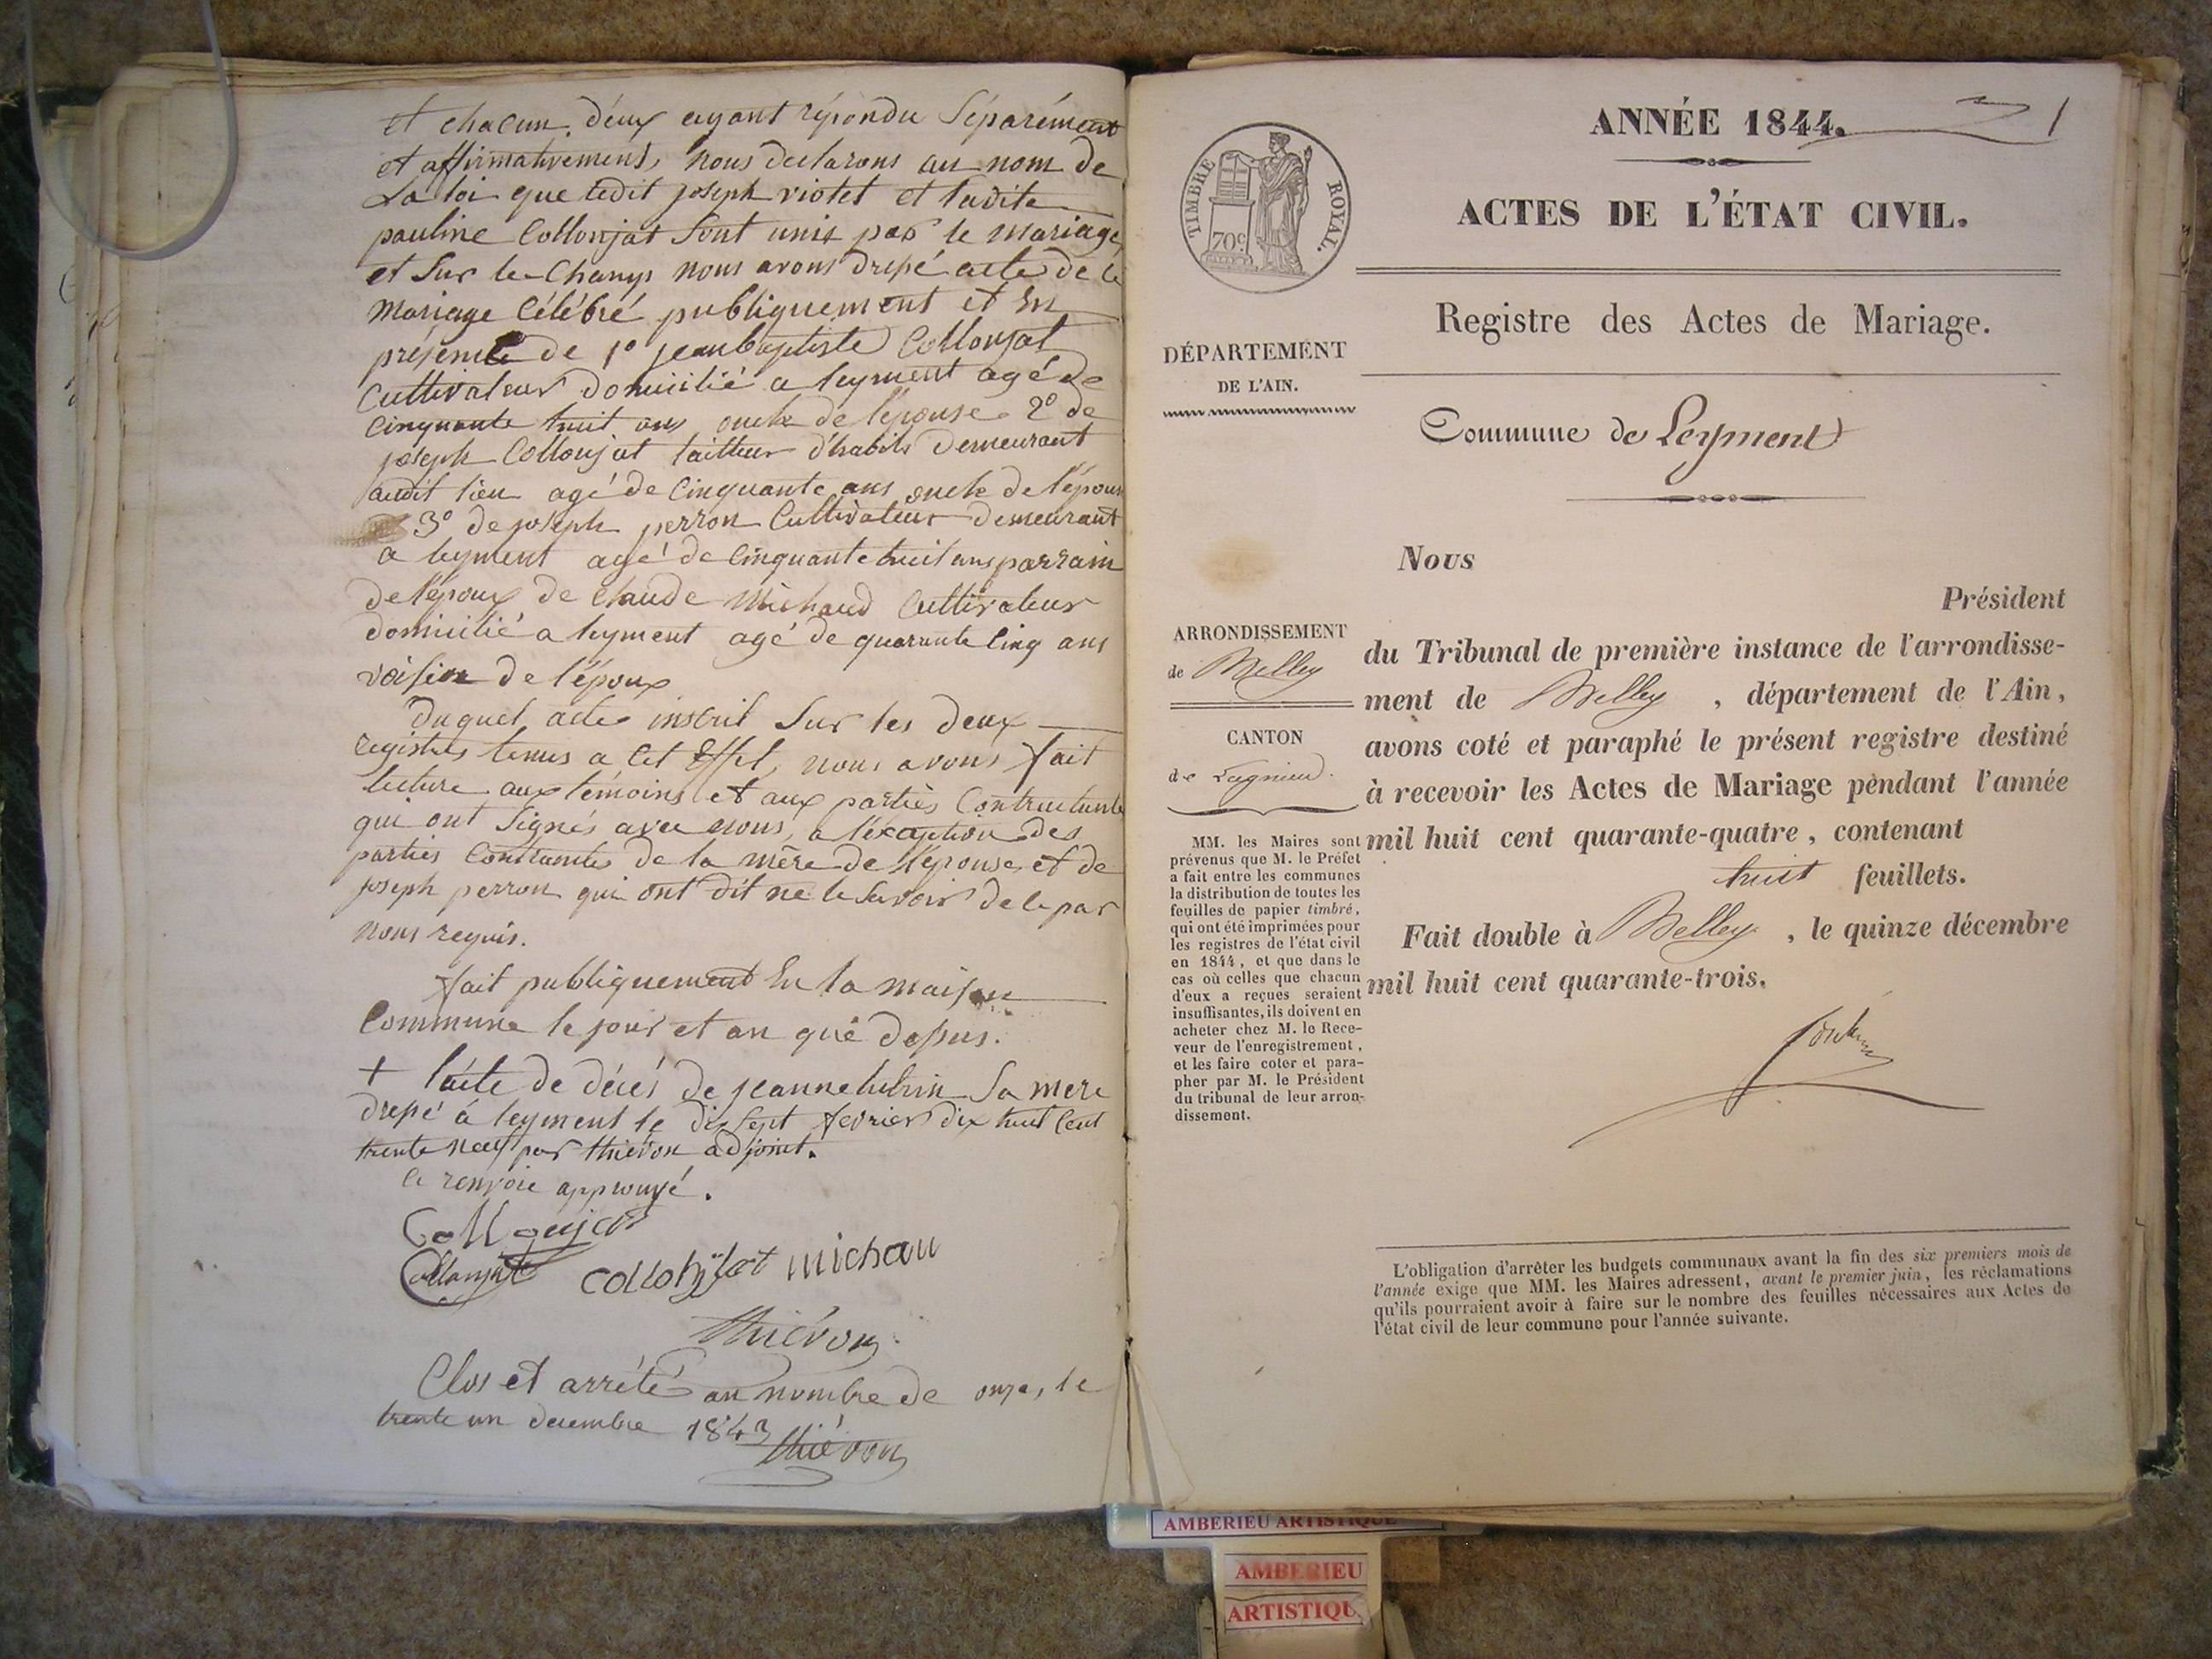 et chacun d'eux ayant répondu Séparément
et affirmativement, nous declarons au nom de
La loi que ledit joseph viollet et ladite
pauline Collonjat Sont unis par le mariage
et Sur le-Champ nous avons drepé acte de ce
mariage Célébré publiquement et En
présence de 1º jeanbaptiste Collonjat
Cultivateur domicilié a leyment agé de
Cinquante huit ans oncle de l'épouse 2º de
joseph Collonjat tailleur d'habits demeurant
audit lieu agé de Cinquante ans oncle de l'épouse
3º de joseph perron Cultivateur demeurant
a leyment agé de Cinquante huit ans parrain
de l'époux de Claude Michaud Cultivateur
domicilié a leyment agé de quarante Cinq ans
voisin de l'époux
duquel acte inscrit Sur les deux
registres tenus a Cet Effet, nous avons fait
lecture aux témoins et aux parties Contractantes
qui ont Signés avec nous, a l'exception des
parties de la mère de l'épouse et de
joseph perron qui ont dit ne le Savoir de ce par
nous requis.
fait publiquement En la maison
Commune le jour et an que dessus.
+ l'acte de décés de jeanne Sa mere
drepé à leyment le dix Sept fevrier dix huit Cent
trente neuf par thiévon adjoint.
le renvoie approuvé.
Collonjat
Collonjat Collonjat michau
thiévon
Clos et arrêté au nombre de onze, le
trente un decembre 1843
thiévon
ANNÉE 1844. 1
TIMBRE ROYAL.
70c
ACTES DE L'ÉTAT CIVIL.
Registre des Actes de Mariage.
DÉPARTEMENT
DE L'AIN.
Commune de Leyment
Nous
Président
ARRONDISSEMENT
de Belley
du Tribunal de première instance de l'arrondisse-
ment de Belley, département de l'Ain,
CANTON
de Lagnieu.
avons coté et paraphé le présent registre destiné
à recevoir les Actes de Mariage pendant l'année
mil huit cent quarante-quatre, contenant
huit feuillets.
Fait double à Belley, le quinze décembre
mil huit cent quarante-trois.
MM. les Maires sont
prévenus que M. le Préfet
a fait entre les communes
la distribution de toutes les
feuilles de papier timbré,
qui ont été imprimées pour
les registres de l'état civil
en 1844, et que dans le
cas où celles que chacun
d'eux a reçues seraient
insuffisantes, ils doivent en
acheter chez M. le Rece-
veur de l'enregistrement,
et les faire coter et para-
pher par M. le Président
du tribunal de leur arron-
dissement.
L'obligation d'arrêter les budgets communaux avant la fin des six premiers mois de
l'année exige que MM. les Maires adressent, avant le premier juin, les réclamations
qu'ils pourraient avoir à faire sur le nombre des feuilles nécessaires aux Actes de
l'état civil de leur commune pour l'année suivante.
AMBERIEU ARTISTIQUE
AMBERIEU
ARTISTIQU